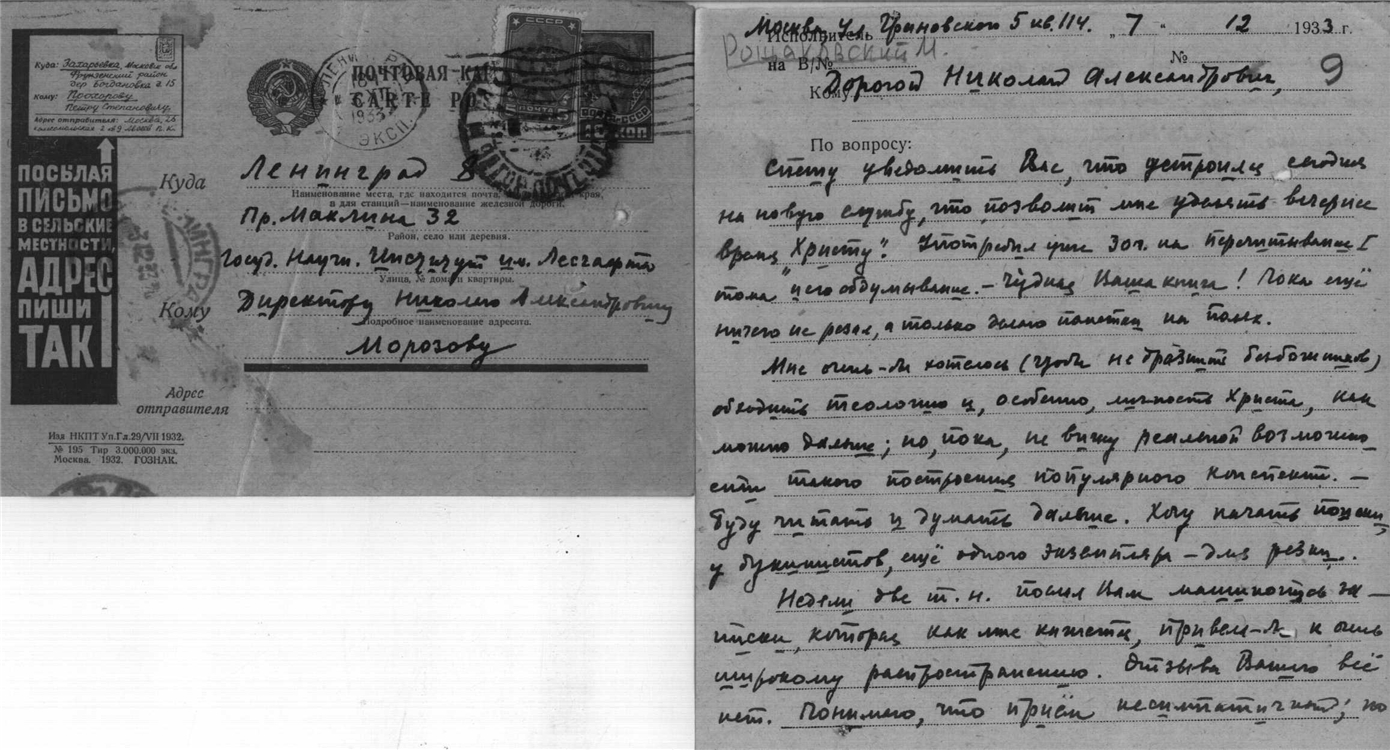 Куда: Захарьевка, Московск обл
Фрунзенский район
дер Богдановка д. 15
Кому: Прохорову
Петру Степановичу
Адрес отправителя: Москва, 26
Комсомольская 2 д 9
ПОСЫЛАЯ
ПИСЬМО
В СЕЛЬСКИЕ
МЕСТНОСТИ,
АДРЕС
ПИШИ
ТАК
СССР
ПОЧТА
ПОЧТОВАЯ КА
CARTE PO
КОП
1933
ЭКСП.
Куда Ленинград 8
Наименование места, где находится почта, края,
а для станций—наименование железной дороги.
Пр. Маклина 32
Район, село или деревня.
Госуд. Научн. Институт им. Лесгафта
Улица, № дома и квартиры.
Кому Директору Николаю Александровичу
Подробное наименование адресата.
Морозову
Адрес
отправителя
Изд НКПТ Уп.Гл.29/VII 1932.
№ 195 Тир 3.000.000 экз.
Москва. 1932. ГОЗНАК.
Москва ул Грановского 5 кв. 114. „7" 12 1933 г.
Исполнитель
Рощаковский М.
на В/№ №
9
Кому Дорогой Николай Александрович,
По вопросу:
Спешу уведомить Вас, что устроился сегодня
на новую службу, что позволит мне уделять вечернее
время „Христу". Употребил уже 30 ч. на перечитывание I
тома и его обдумывание. — Чудная Ваша книга! Пока ещё
ничего не резал, а только делаю пометки на полях.
Мне очень-бы хотелось (чтобы не дразнить безбожников)
обходить теологию и, особенно, личность Христа, как
можно дальше; но, пока, не вижу реальной возможно
сти такого построения популярного конспекта. —
Буду читать и думать дальше. Хочу начать поиски,
у букинистов, ещё одного экземпляра — для резки.
Недели две т. н. послал Вам машинопись за—
писки, которая как мне кажется, привела-бы к очень
широкому распространению. Отзыва Вашего всё
нет. Понимаю, что приём несимпатичный; но